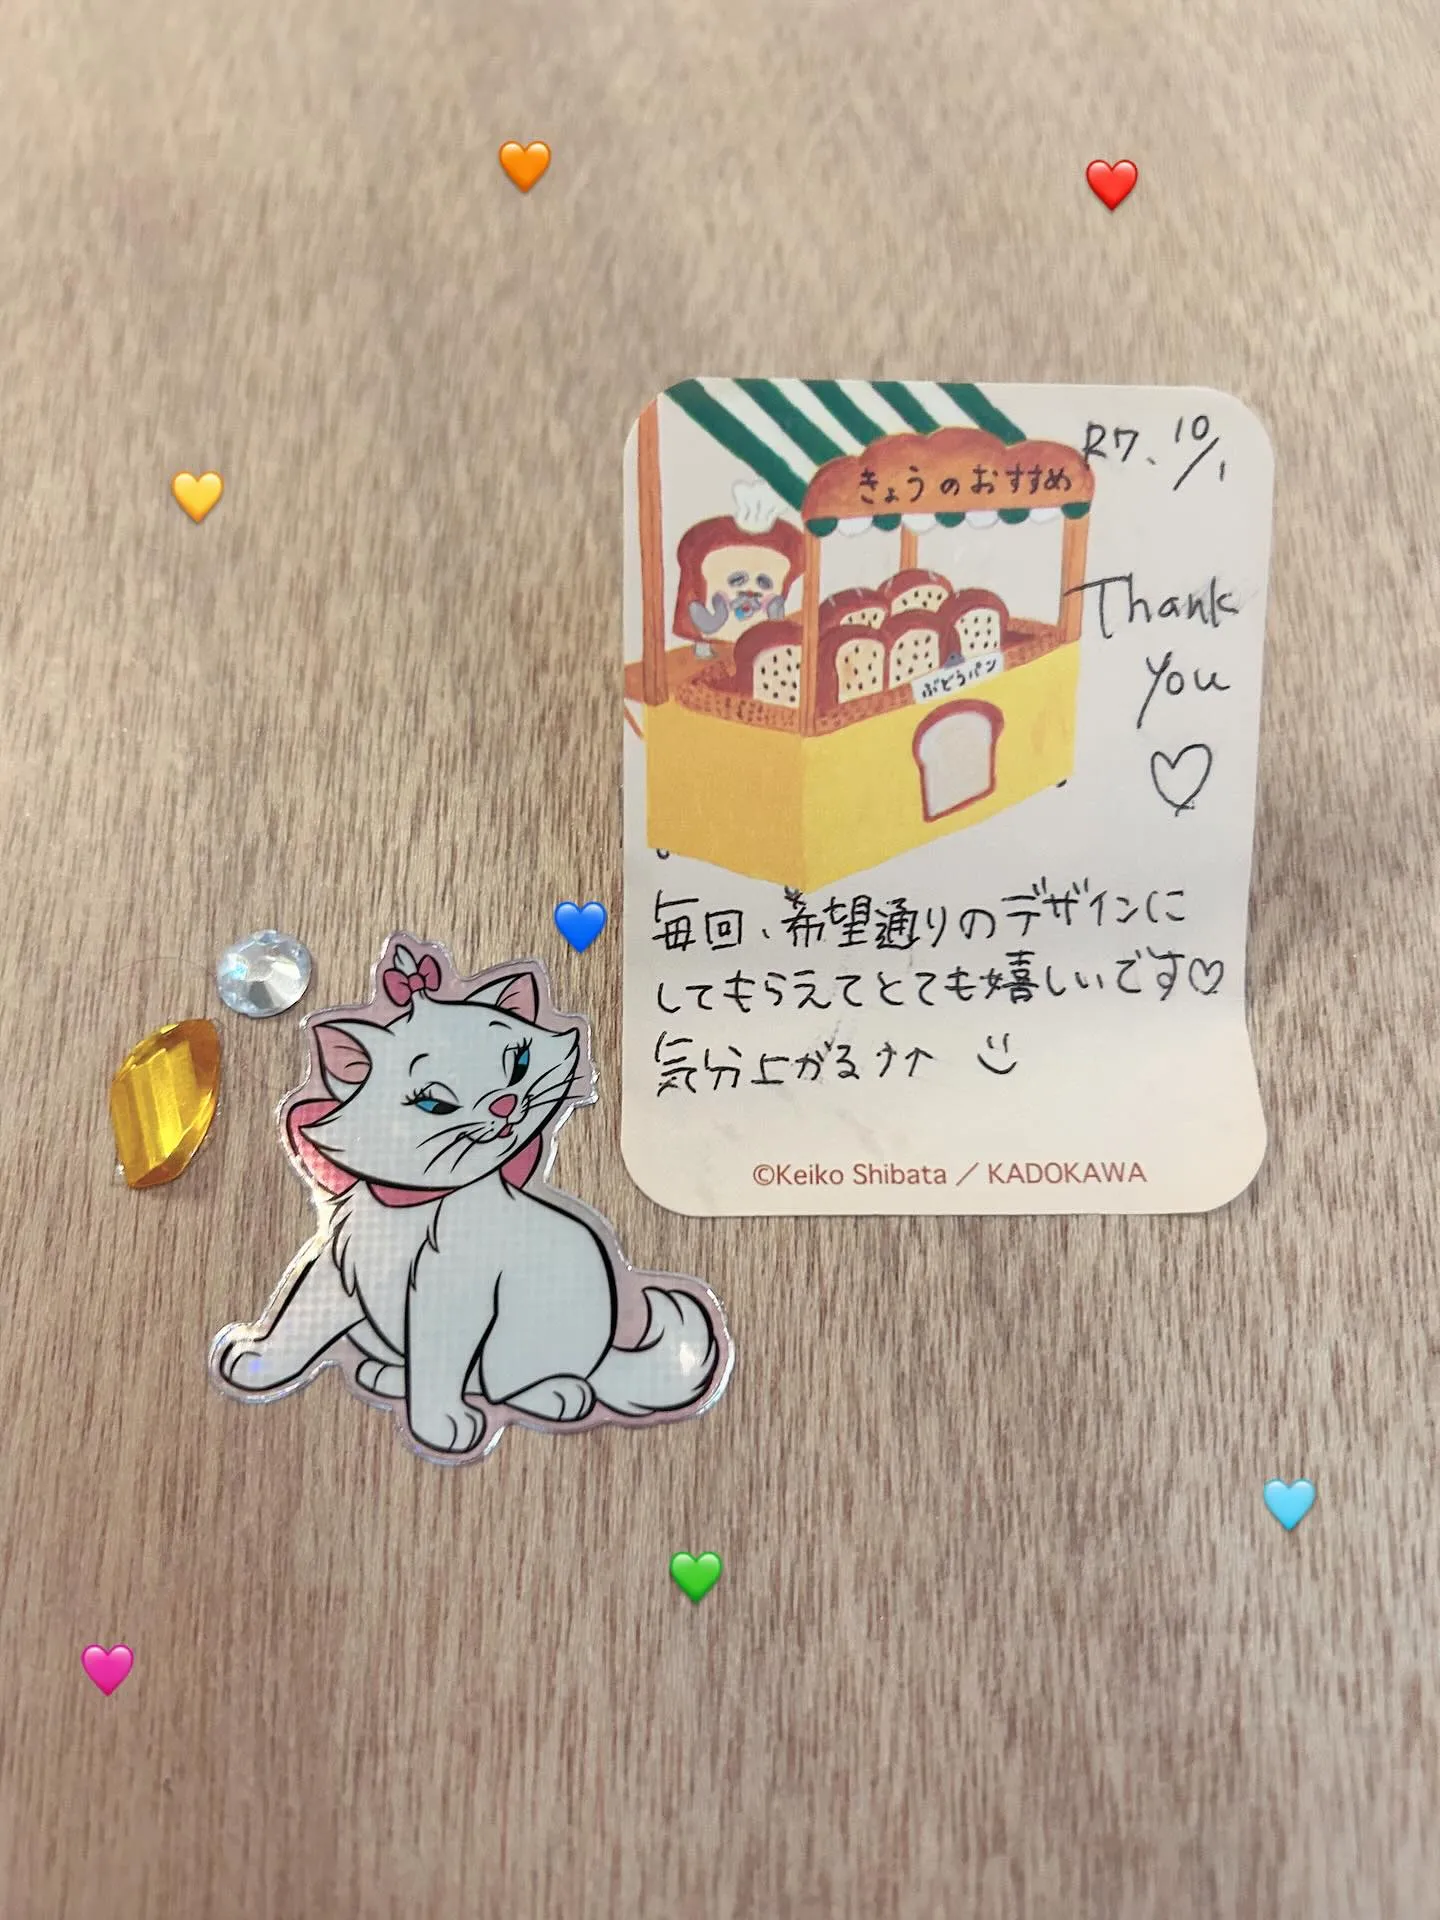 きょうのおすすめ
R7. 10/1
ぶどうパン
Thank
you
♡
毎回、希望通りのデザインに
してもらえてとても嬉しいです♡
気分上がる↑↑
©Keiko Shibata／KADOKAWA